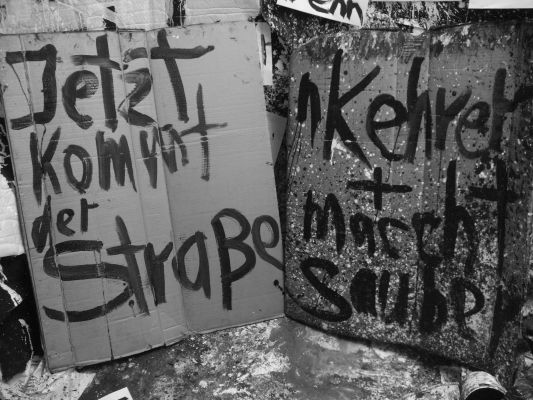 enn
Jetzt
kommt
der
Straße
nKehrer
+
macht
Sauber